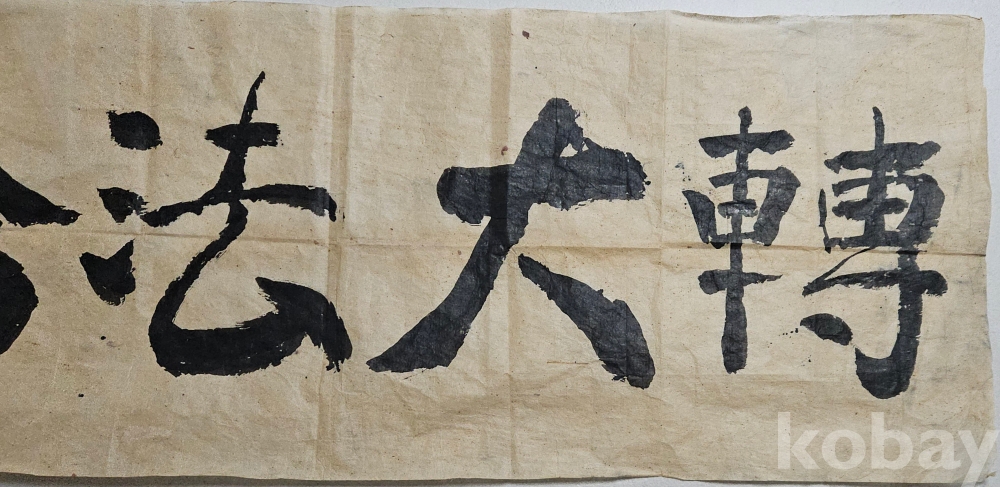 轉大法
kobay